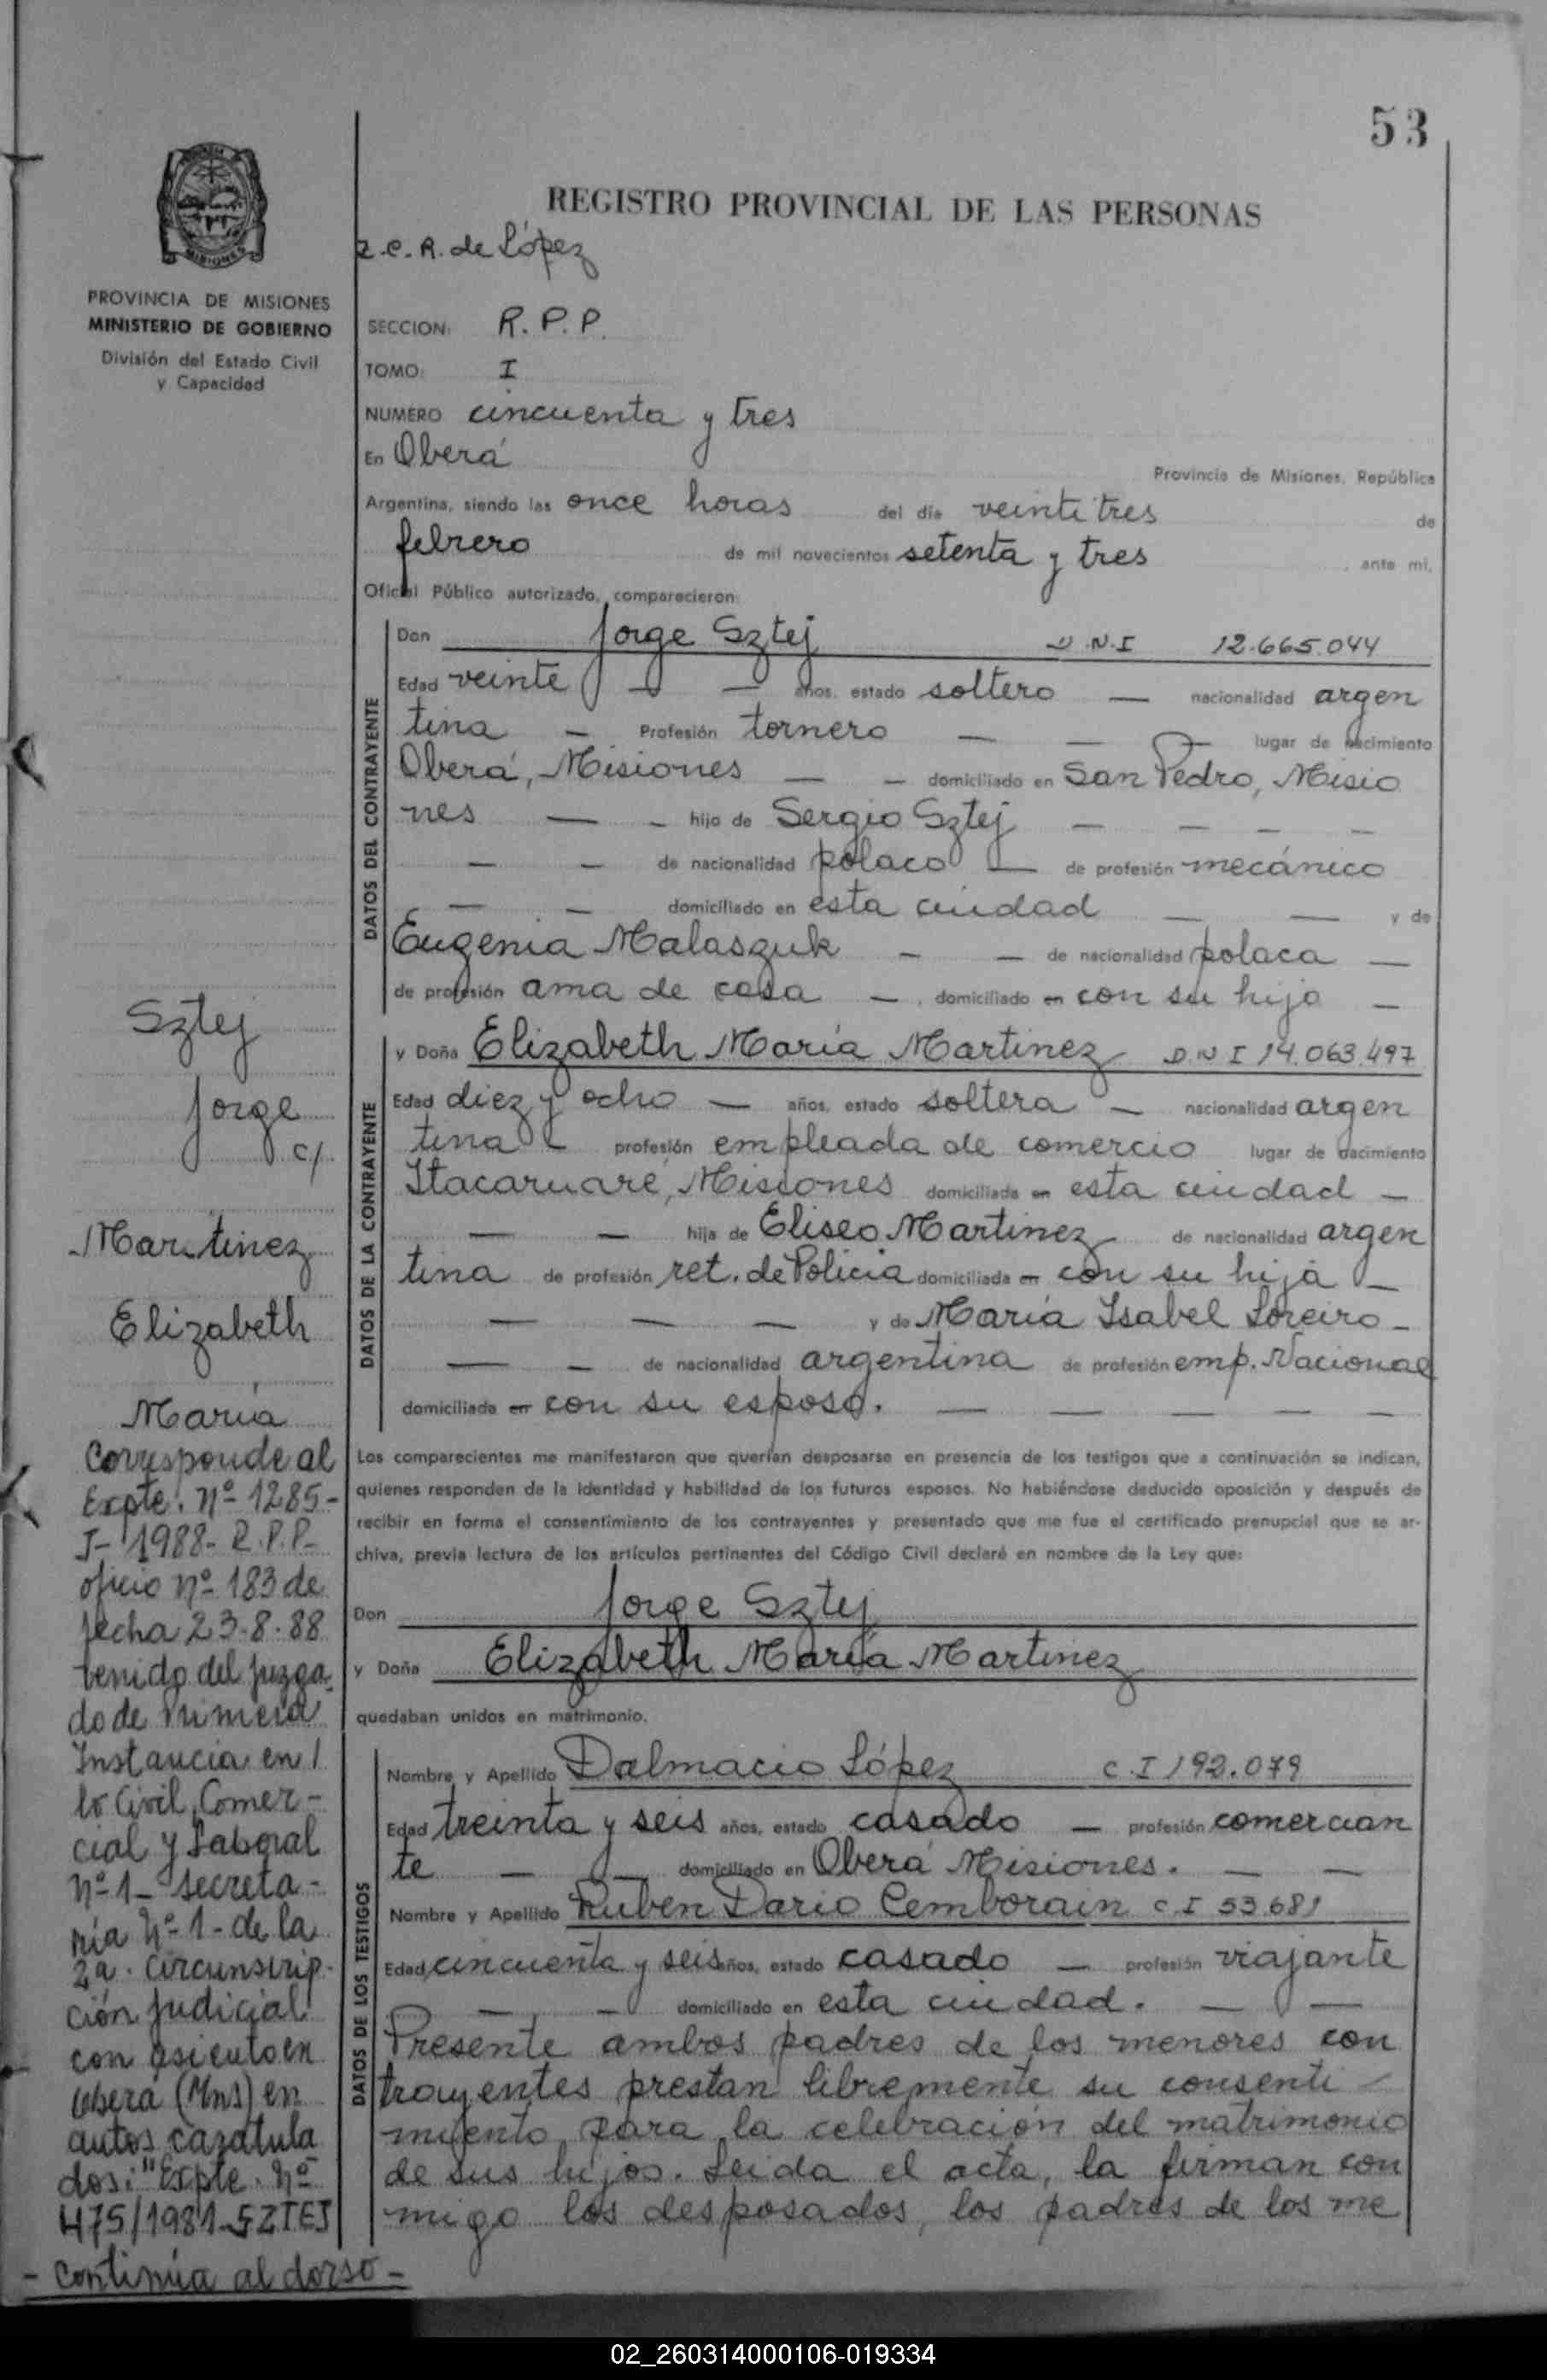 53
REGISTRO PROVINCIAL DE LAS PERSONAS
Z.C.R. de López
MISIONES
PROVINCIA DE MISIONES
MINISTERIO DE GOBIERNO
División del Estado Civil
y Capacidad
SECCION: R.P.P.
TOMO: I
NUMERO cincuenta y tres
En Oberá Provincia de Misiones, República
Argentina, siendo las once horas del día veintitres de
febrero de mil novecientos setenta y tres, ante mi,
Oficial Público autorizado, comparecieron:
DATOS DEL CONTRAYENTE
Don Jorge Sztej D.N.I 12.665.044
Edad veinte — — años, estado soltero — nacionalidad argen
tina — Profesión tornero — — — lugar de nacimiento
Oberá, Misiones — — domiciliado en San Pedro, Misio
nes — — hijo de Sergio Sztej — — — —
— — de nacionalidad polaco — de profesión mecánico
— — domiciliado en esta ciudad — — y de
Eugenia Malaszuk — — de nacionalidad polaca —
de profesión ama de casa —, domiciliado en con su hijo —
DATOS DE LA CONTRAYENTE
y Doña Elizabeth María Martinez D.N I 14.063.497
Edad diez y ocho — años, estado soltera — nacionalidad argen
tina — profesión empleada de comercio lugar de nacimiento
Itacaruaré, Misiones domiciliada en esta ciudad —
— — hija de Eliseo Martinez de nacionalidad argen
tina de profesión ret. de Policia domiciliada en con su hija —
— — — y de María Isabel Loreiro —
— — de nacionalidad argentina de profesión emp. Nacional
domiciliada en con su esposo. — — — — —
Los comparecientes me manifestaron que querían desposarse en presencia de los testigos que a continuación se indican,
quienes responden de la identidad y habilidad de los futuros esposos. No habiéndose deducido oposición y después de
recibir en forma el consentimiento de los contrayentes y presentado que me fue el certificado prenupcial que se ar-
chiva, previa lectura de los artículos pertinentes del Código Civil declaré en nombre de la Ley que:
Don Jorge Sztej
y Doña Elizabeth María Martinez
quedaban unidos en matrimonio.
DATOS DE LOS TESTIGOS
Nombre y Apellido Dalmacio López C.I 192.079
Edad treinta y seis años, estado casado — profesión comercian
te — — domiciliado en Oberá Misiones. — —
Nombre y Apellido Ruben Dario Cemborain C.I 53.681
Edad cincuenta y seis años, estado casado — profesión viajante
— — domiciliado en esta ciudad. — —
Presente ambos padres de los menores con
trayentes prestan libremente su consenti
miento para la celebración del matrimonio
de sus hijos. Leida el acta, la firman con
migo los desposados, los padres de los me
Sztej
Jorge
c/.
Martinez
Elizabeth
María
Corresponde al
Expte. Nº 1285-
J- 1988- R.P.P.
oficio nº 183 de
fecha 23-8-88
venido del Juzga-
do de Primera
Instancia en
lo Civil, Comer-
cial y Laboral
nº 1- Secreta-
ria Nº 1- de la
2a. Circunscrip-
ción Judicial
con asiento en
Oberá (Mns) en
autos caratula
dos: "Expte. Nº
475/1981-SZTEJ
- Continúa al dorso -
02_260314000106-019334